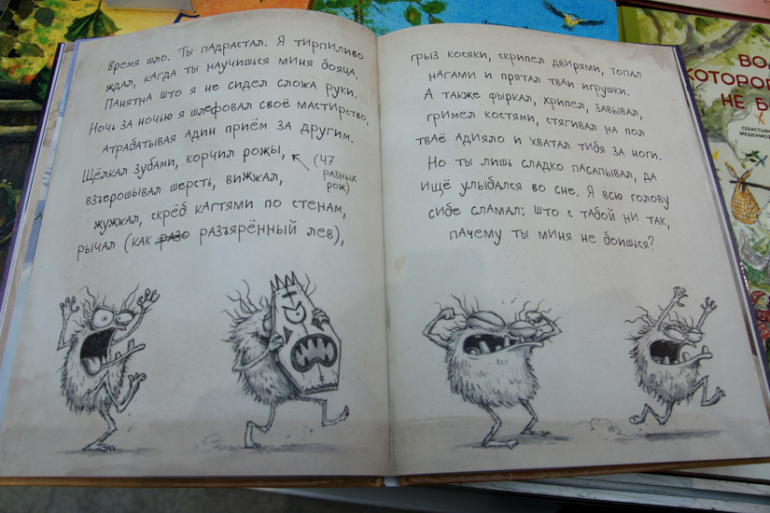 время шло. Ты падрастал. Я тирпиливо
ждал, кагда ты научишься миня бояца.
Панятна што я не сидел сложа руки.
Ночь за ночью я шлефовал своё мастирство,
атрабатывая адин приём за другим.
Щёлкал зубами, корчил рожы,
(47
разных
рож)
взъерошывал шерсть, вижжал,
жужжал, скрёб кагтями по стенам,
рычал (как разо разъярённый лев),
грыз косяки, скрипел двирями, топал
нагами и прятал тваи игрушки.
А также фыркал, хрипел, завывал,
гримел костями, стягивал на пол
тваё адияло и хватал тибя за ноги.
Но ты лишь сладко пасапывал, да
ищё улыбался во сне. Я всю голову
сибе сламал: што с табой ни так,
пачему ты миня не боишься?
КОТОРОГ
НЕ Б
СЕБАСТЬЯН
МЕШЕНМОЗ